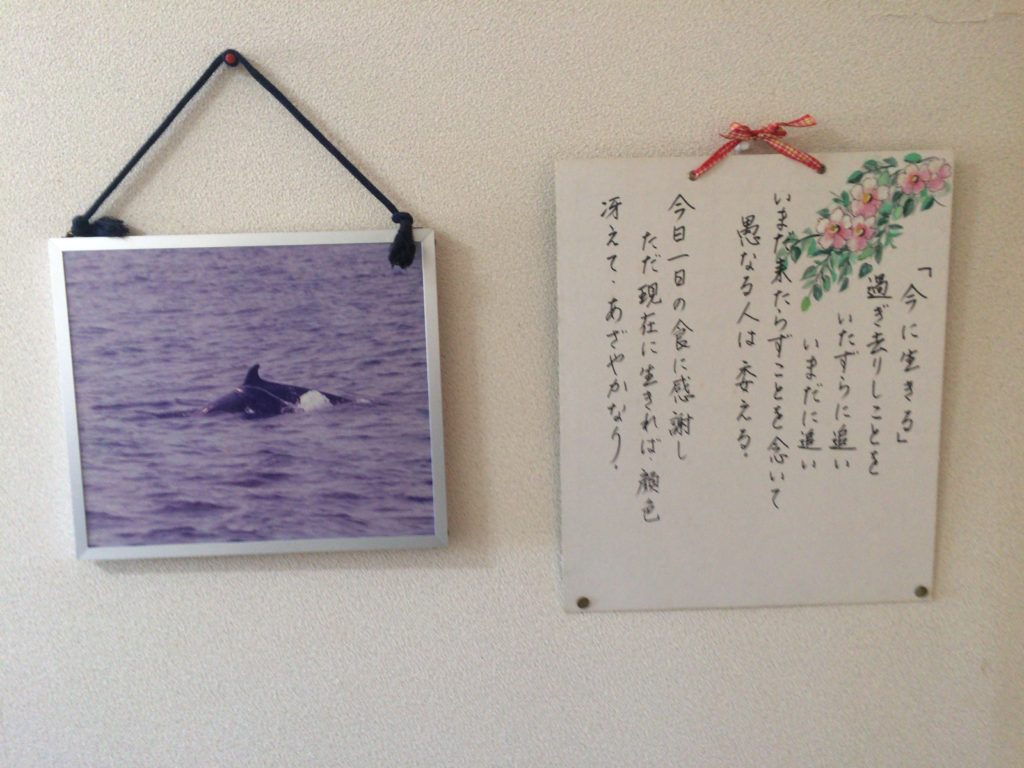 「今に生きる」
過ぎ去りしことを
いたずらに追い
いまだに追い
いまだ来たらずことを念いて
愚なる人は委える。
今日一日の食に感謝し
ただ現在に生きれば、顔色
冴えて、あざやかなり。